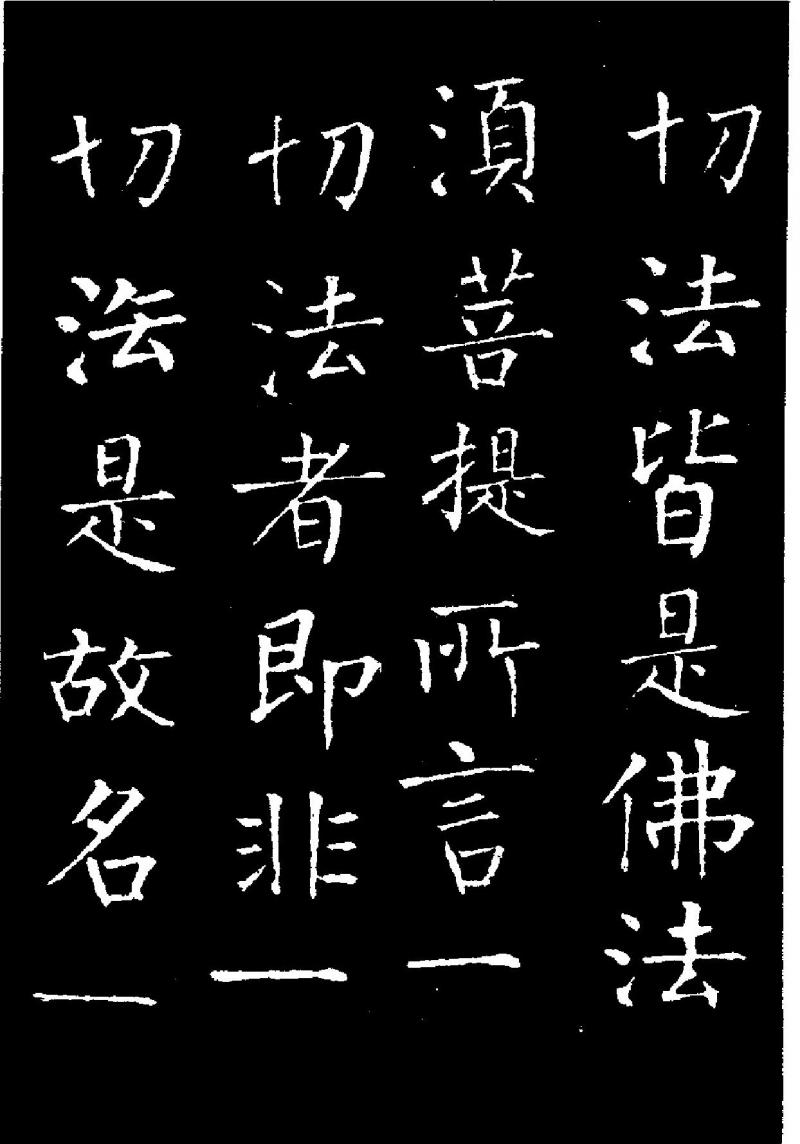 切法皆是佛法
須菩提所言一
切法者即非一
切法是故名一